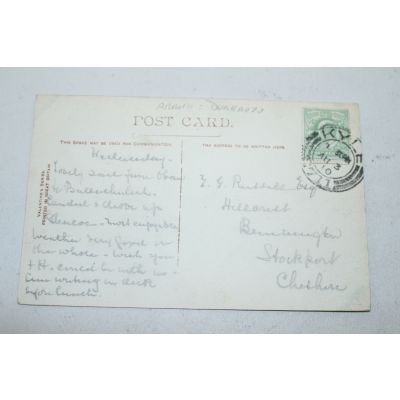 POST CARD.
THIS SPACE MAY BE USED FOR COMMUNICATION.
THE ADDRESS TO BE WRITTEN HERE.
VALENTINE'S SERIES
PRINTED IN GREAT BRITAIN
KYLE
AU 3
10
Wednesday
Lovely sail from Oban
to Ballachulish
& drove up
Glencoe - most enjoyable
weather very good on
the whole - wish you
+ H. could be with us -
am writing on deck
before lunch.
Russell Esq
Hillcrest
Stockport
Cheshire